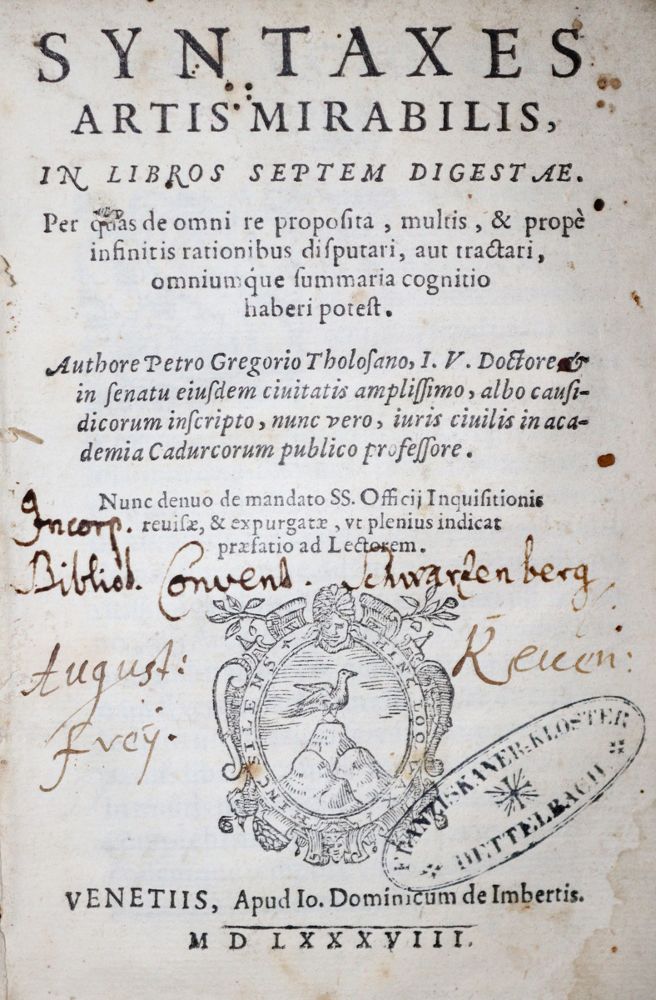 SYNTAXES
ARTIS MIRABILIS,
IN LIBROS SEPTEM DIGESTAE.
Per quas de omni re proposita, multis, & propè
infinitis rationibus disputari, aut tractari,
omniumque summaria cognitio
haberi potest.
Authore Petro Gregorio Tholosano, I. V. Doctore &
in senatu eiusdem ciuitatis amplissimo, albo causi-
dicorum inscripto, nunc vero, iuris ciuilis in aca-
demia Cadurcorum publico professore.
Nunc denuo de mandato SS. Officij Inquisitionis
reuisæ, & expurgatæ, vt plenius indicat
præfatio ad Lectorem.
Incorp.
Bibliot. Convent. Schwarzenberg
August:
Frey.
HINC SILENS
HINC LOQ
FRANZISKANER-KLOSTER
DETTELBACH
VENETIIS, Apud Io. Dominicum de Imbertis.
M D LXXXVIII.